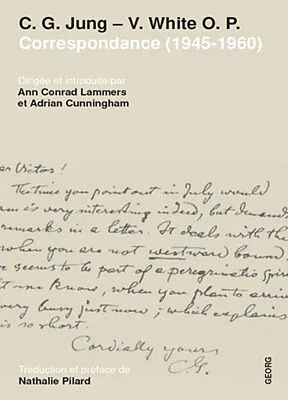 C. G. Jung – V. White O. P.
Correspondance (1945-1960)
Dirigée et introduite par
Ann Conrad Lammers
et Adrian Cunningham
ar Victor!
The time you point out in July would
is very interesting indeed, but demands
remarks in a letter. It deals with the
when you are not westward bound.
seems to be part of a peregrinatio
me know, when you plan to
very busy just now; which explains
is so short.
Cordially yours
C.G.
Traduction et préface de
Nathalie Pilard
GEORG